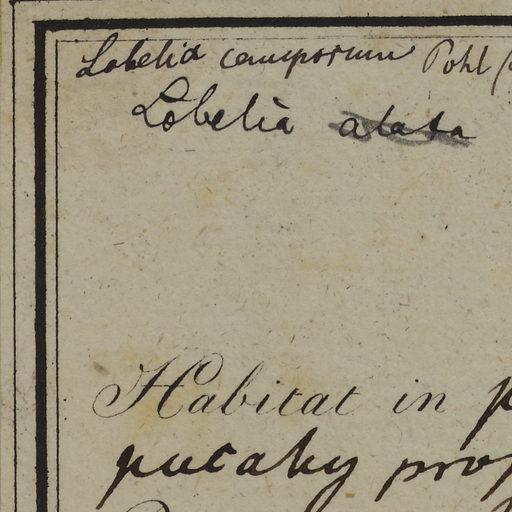 Lobelia camporum Pohl
Lobelia alata
Habitat in
pucahy